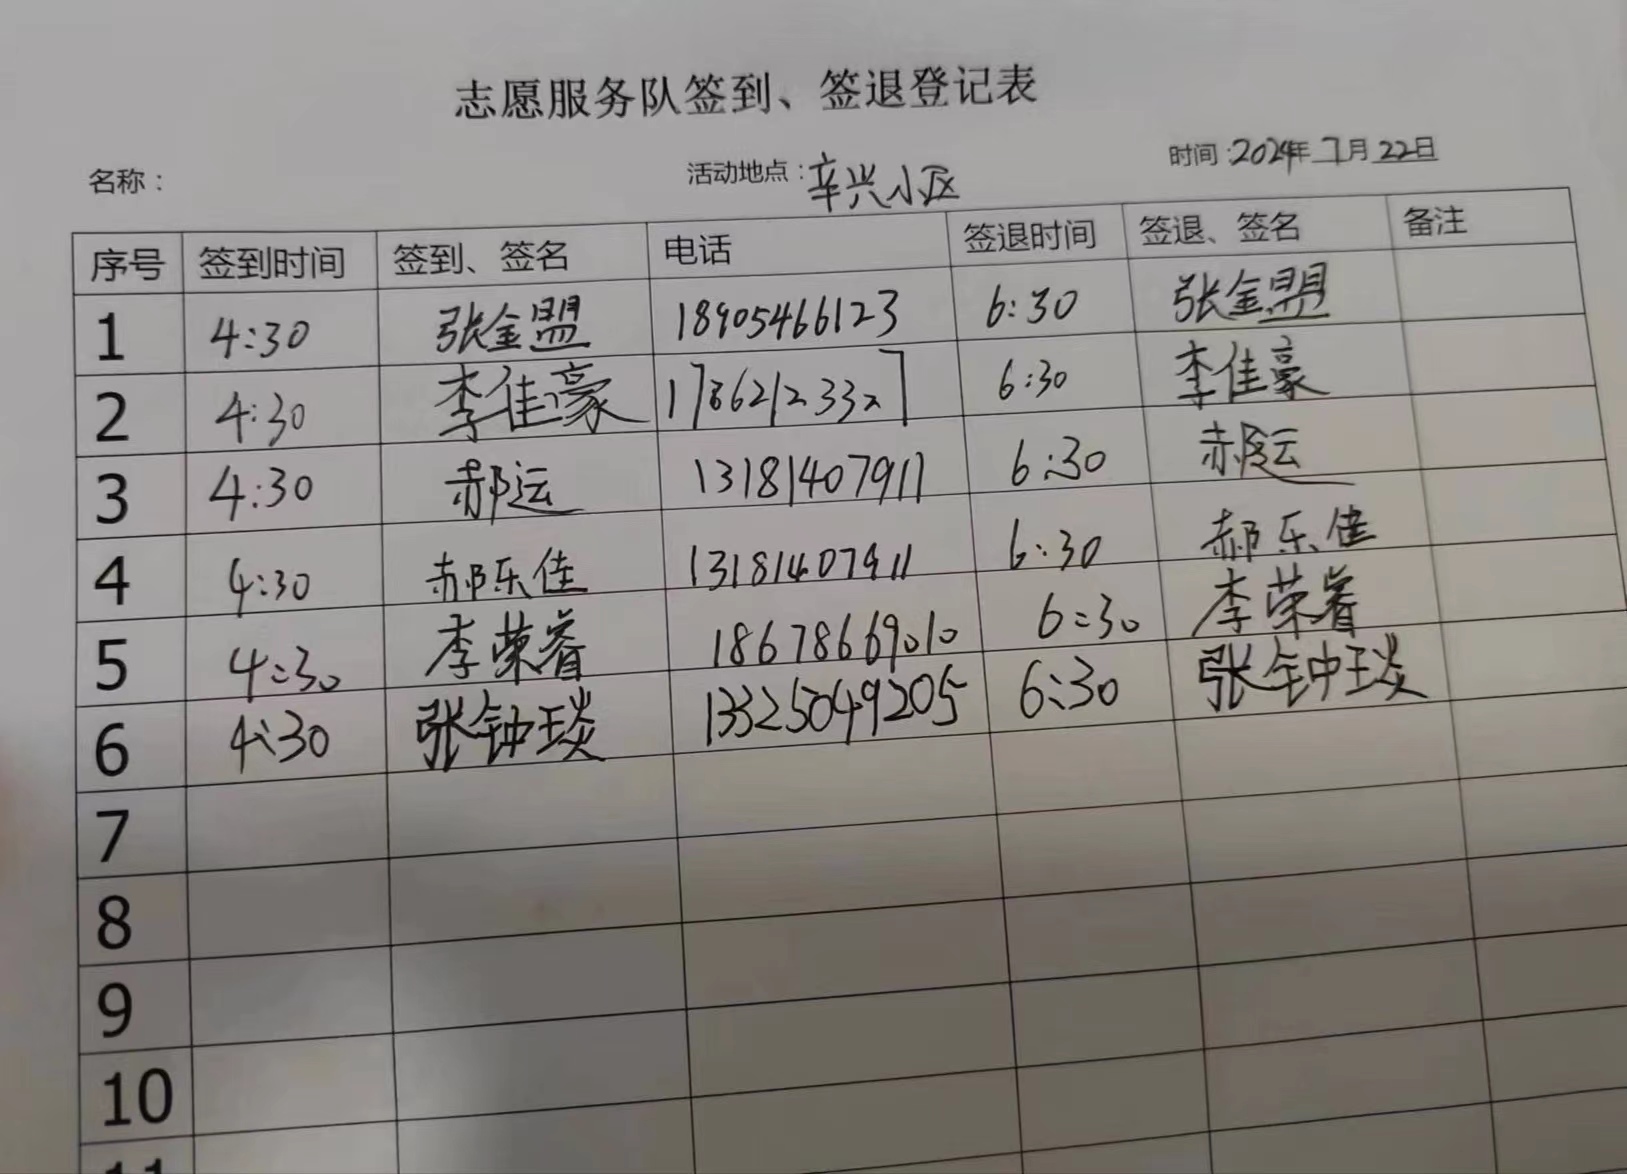 志愿服务队签到、签退登记表
名称： 活动地点：辛兴小区 时间：2024年7月22日
序号 签到时间 签到、签名 电话 签退时间 签退、签名 备注
1 4:30 张金盟 18905466123 6:30 张金盟
2 4:30 李佳豪 6:30 李佳豪
3 4:30 郝运 13181407911 6:30 郝运
4 4:30 郝乐佳 13181407911 6:30 郝乐佳
5 4:30 李荣睿 18678669010 6:30 李荣睿
6 4:30 张钟琰 13325049205 6:30 张钟琰
7
8
9
10
11